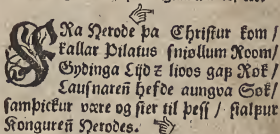 FRa Herode þa Christur kom /
kallar Pilatus sniøllum Room /
Gydinga Lijd z lioos gaf Rok /
Lausnaren hefde aungva Sok /
sampickur være og sier til þess / sialfur
Konguren Herodes.